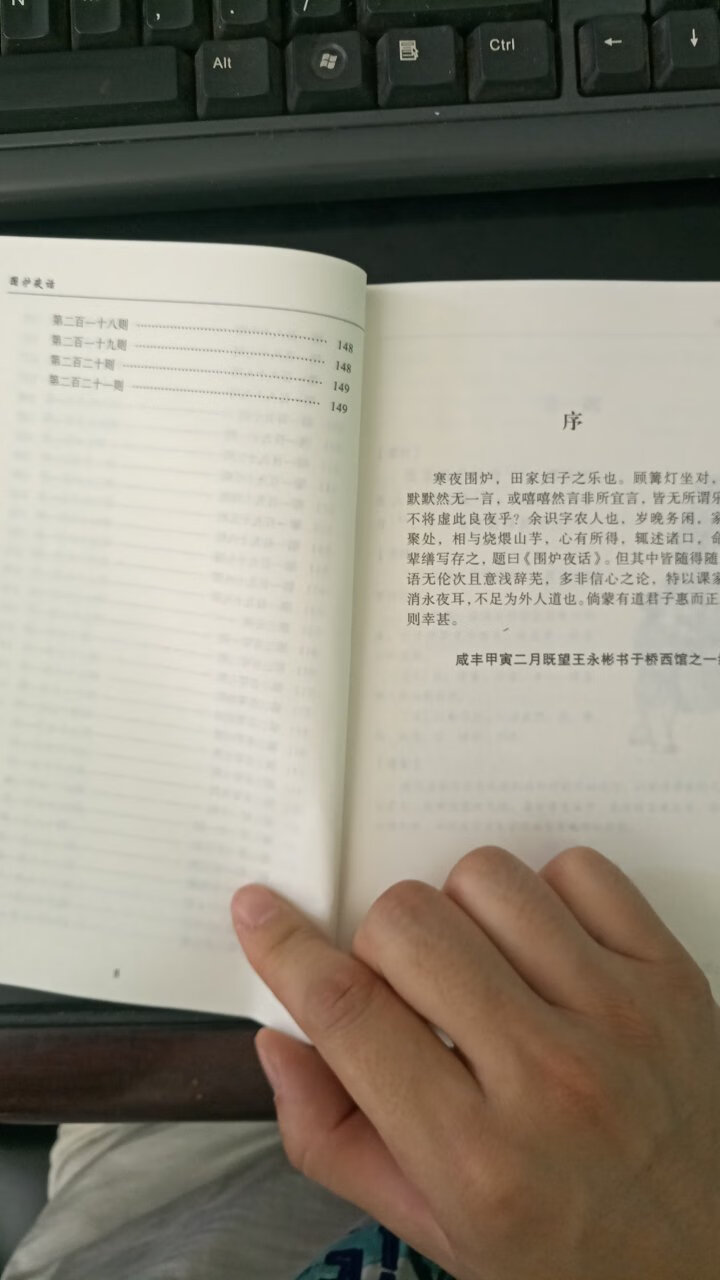 N
,
.
/
Alt
Ctrl
←
↓
围炉夜话
第二百一十八则 148
第二百一十九则 148
第二百二十则 149
第二百二十一则 149
8
序
寒夜围炉，田家妇子之乐也。顾篝灯坐对，
默默然无一言，或嘻嘻然言非所宜言，皆无所谓乐
不将虚此良夜乎？余识字农人也，岁晚务闲，家
聚处，相与烧煨山芋，心有所得，辄述诸口，命
辈缮写存之，题曰《围炉夜话》。但其中皆随得随
语无伦次且意浅辞芜，多非信心之论，特以课家
消永夜耳，不足为外人道也。倘蒙有道君子惠而正
则幸甚。
咸丰甲寅二月既望王永彬书于桥西馆之一